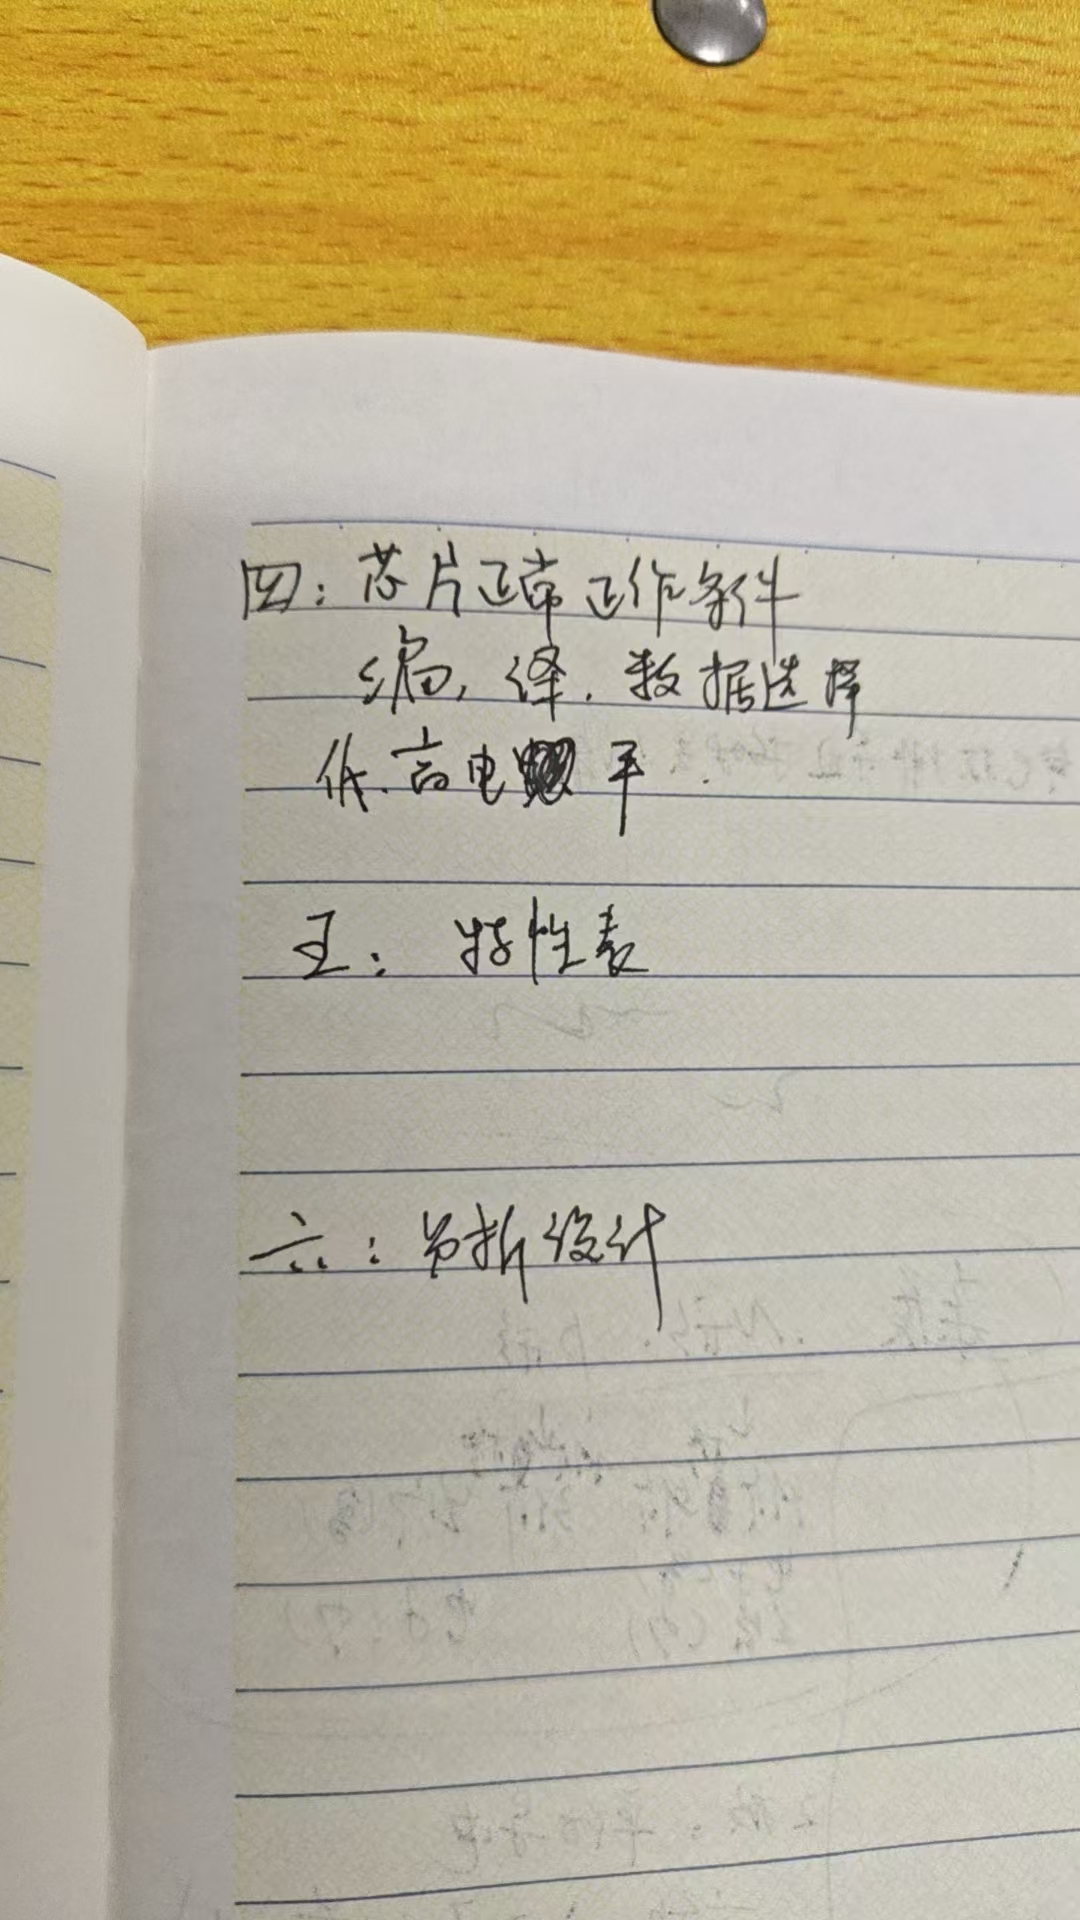 四：芯片正常工作条件
编，译．数据选择
低．高电平．
五：特性表
六：分析设计